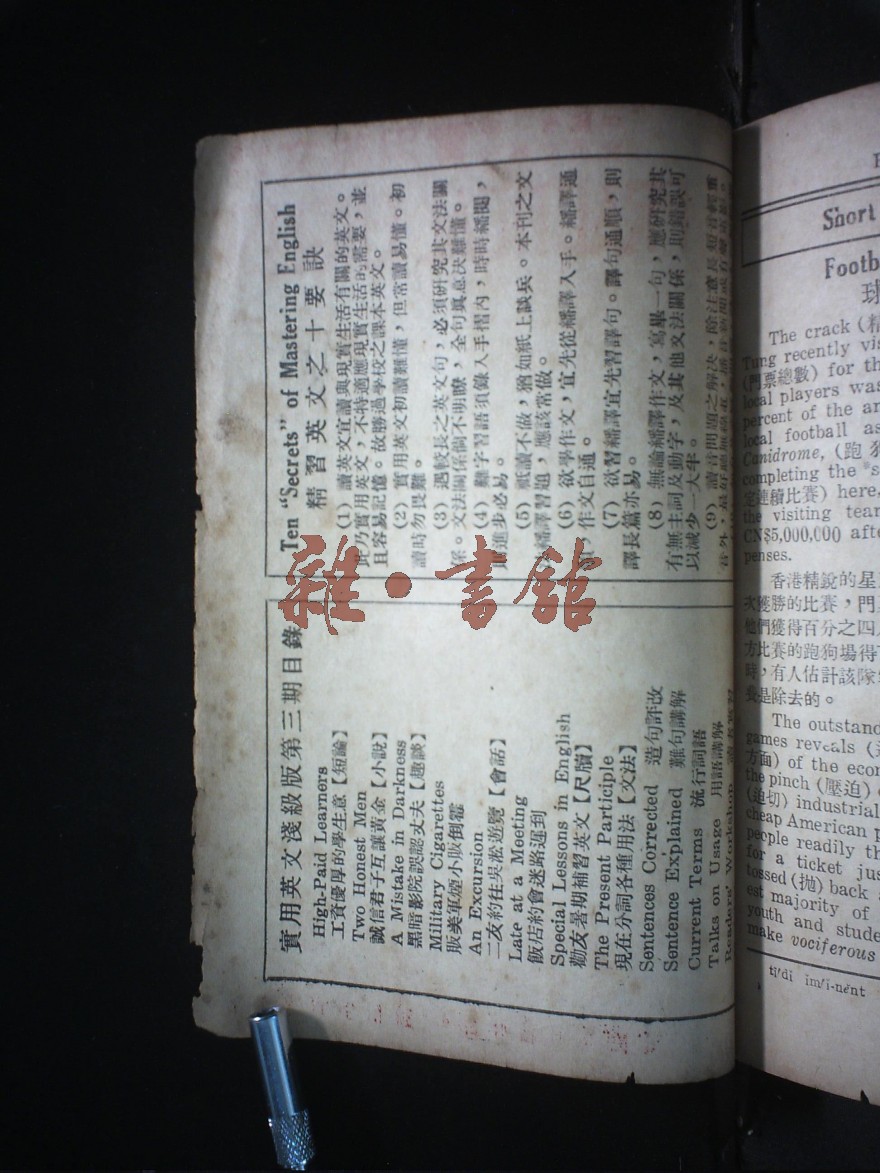 Ten "Secrets" of Mastering English
精習英文之十要訣
(1) 讀英文宜讀與現實生活有關的英文。
此乃實用英文,不特適應現實生活的需要,並
且容易記憶。故勝過學校之課本英文。
(2) 實用英文初讀難懂,但常讀易懂。初
讀時勿畏難。
(3) 遇較長之英文句,必須研究其文法關
係。文法關係倘不明瞭,全句眞意決難懂。
(4) 難字習語須錄入手摺內,時時繙閱,
進步必易。
(5) 祇讀不做,猶如紙上談兵。本刊之文
繙譯習題,應該常做。
(6) 欲學作文,宜先從繙譯入手。繙譯通
,作文自通。
(7) 欲習繙譯宜先習譯句。譯句通順,則
譯長篇亦易。
(8) 無論繙譯作文,寫畢一句,應研究其
有無主詞及動字,及其他文法關係,則錯誤可
以減少一大半。
(9) 讀音問題之解決,除注意長短音輕重
實用英文淺級版第三期目錄
High-Paid Learners
工資優厚的學生意【短論】
Two Honest Men
誠信君子互讓黃金【小說】
A Mistake in Darkness
黑暗影院誤認丈夫【趣談】
Military Cigarettes
販美軍煙小販倒霉
An Excursion
二友約往吳淞遊覽【會話】
Late at a Meeting
飯店約會迷路遲到
Special Lessons in English
勸友暑期補習英文【尺牘】
The Present Participle
現在分詞各種用法【文法】
Sentences Corrected 造句評改
Sentence Explained 難句講解
Current Terms 流行詞語
Talks on Usage 用語講解
Readers' Workshop
雜·書館
Short
Footb
球
The crack (精
Tung recently vis
(門票總數) for th
local players was
percent of the an
local football as
Canidrome, (跑狗
completing the "s
連續比賽) here,
the visiting tear
CN$5,000,000 afte
penses.
香港精銳的星
次獲勝的比賽,門
他們獲得百分之四
方比賽的跑狗場得
時,有人估計該隊
是除去的。
The outstand
games reveals (
方面) of the econ
the pinch (壓迫)
(迫切) industrial
cheap American p
people readily th
for a ticket jus
tossed (拋) back
est majority of
youth and stude
make vociferous
ti'di im'i-nent